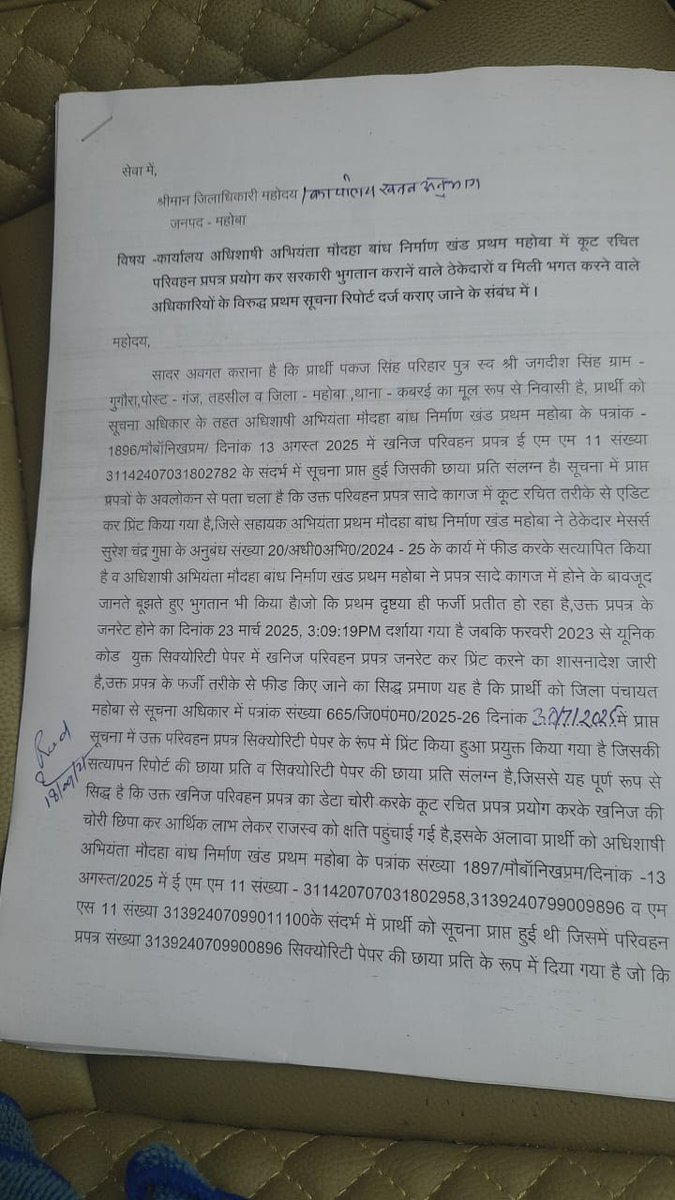 सेवा में,
श्रीमान जिलाधिकारी महोदय / कार्यालय खनन अनुभाग
जनपद - महोबा
विषय -कार्यालय अधिशाषी अभियंता मौदहा बांध निर्माण खंड प्रथम महोबा में कूट रचित
परिवहन प्रपत्र प्रयोग कर सरकारी भुगतान करानें वाले ठेकेदारों व मिली भगत करने वाले
अधिकारियों के विरुद्ध प्रथम सूचना रिपोर्ट दर्ज कराए जाने के संबंध में ।
महोदय,
सादर अवगत कराना है कि प्रार्थी पंकज सिंह परिहार पुत्र स्व श्री जगदीश सिंह ग्राम -
गुगौरा,पोस्ट - गंज, तहसील व जिला - महोबा ,थाना - कबरई का मूल रूप से निवासी है, प्रार्थी को
सूचना अधिकार के तहत अधिशाषी अभियंता मौदहा बांध निर्माण खंड प्रथम महोबा के पत्रांक -
1896/मौबॉनिखप्रम/ दिनांक 13 अगस्त 2025 में खनिज परिवहन प्रपत्र ई एम एम 11 संख्या
31142407031802782 के संदर्भ में सूचना प्राप्त हुई जिसकी छाया प्रति संलग्न है। सूचना में प्राप्त
प्रपत्रों के अवलोकन से पता चला है कि उक्त परिवहन प्रपत्र सादे कागज में कूट रचित तरीके से एडिट
कर प्रिंट किया गया है,जिसे सहायक अभियंता प्रथम मौदहा बांध निर्माण खंड महोबा ने ठेकेदार मेसर्स
सुरेश चंद्र गुप्ता के अनुबंध संख्या 20/अधी0अभि0/2024 - 25 के कार्य में फीड करके सत्यापित किया
है व अधिशाषी अभियंता मौदहा बांध निर्माण खंड प्रथम महोबा ने प्रपत्र सादे कागज में होने के बावजूद
जानते बूझते हुए भुगतान भी किया है।जो कि प्रथम दृष्टया ही फर्जी प्रतीत हो रहा है,उक्त प्रपत्र के
जनरेट होने का दिनांक 23 मार्च 2025, 3:09:19PM दर्शाया गया है जबकि फरवरी 2023 से यूनिक
कोड युक्त सिक्योरिटी पेपर में खनिज परिवहन प्रपत्र जनरेट कर प्रिंट करने का शासनादेश जारी
है,उक्त प्रपत्र के फर्जी तरीके से फीड किए जाने का सिद्ध प्रमाण यह है कि प्रार्थी को जिला पंचायत
महोबा से सूचना अधिकार में पत्रांक संख्या 665/जि0पं0म0/2025-26 दिनांक 30/7/2025 में प्राप्त
सूचना में उक्त परिवहन प्रपत्र सिक्योरिटी पेपर के रूप में प्रिंट किया हुआ प्रयुक्त किया गया है जिसकी
सत्यापन रिपोर्ट की छाया प्रति व सिक्योरिटी पेपर की छाया प्रति संलग्न है,जिससे यह पूर्ण रूप से
सिद्ध है कि उक्त खनिज परिवहन प्रपत्र का डेटा चोरी करके कूट रचित प्रपत्र प्रयोग करके खनिज की
चोरी छिपा कर आर्थिक लाभ लेकर राजस्व को क्षति पहुंचाई गई है,इसके अलावा प्रार्थी को अधिशाषी
अभियंता मौदहा बांध निर्माण खंड प्रथम महोबा के पत्रांक संख्या 1897/मौबॉनिखप्रम/दिनांक -13
अगस्त/2025 में ई एम एम 11 संख्या - 311420707031802958,3139240799009896 व एम
एस 11 संख्या 31392407099011100के संदर्भ में प्रार्थी को सूचना प्राप्त हुई थी जिसमें परिवहन
प्रपत्र संख्या 3139240709900896 सिक्योरिटी पेपर की छाया प्रति के रूप में दिया गया है जो कि